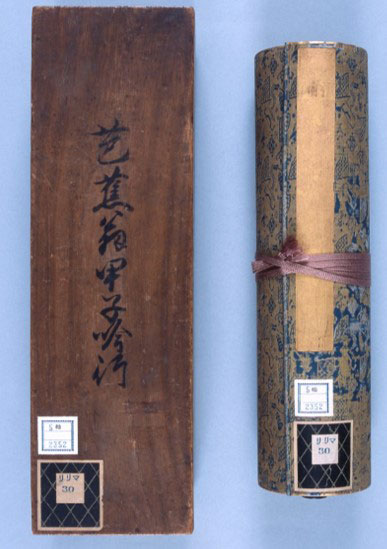 芭蕉翁甲子吟行
リリマ
30
リリマ
30